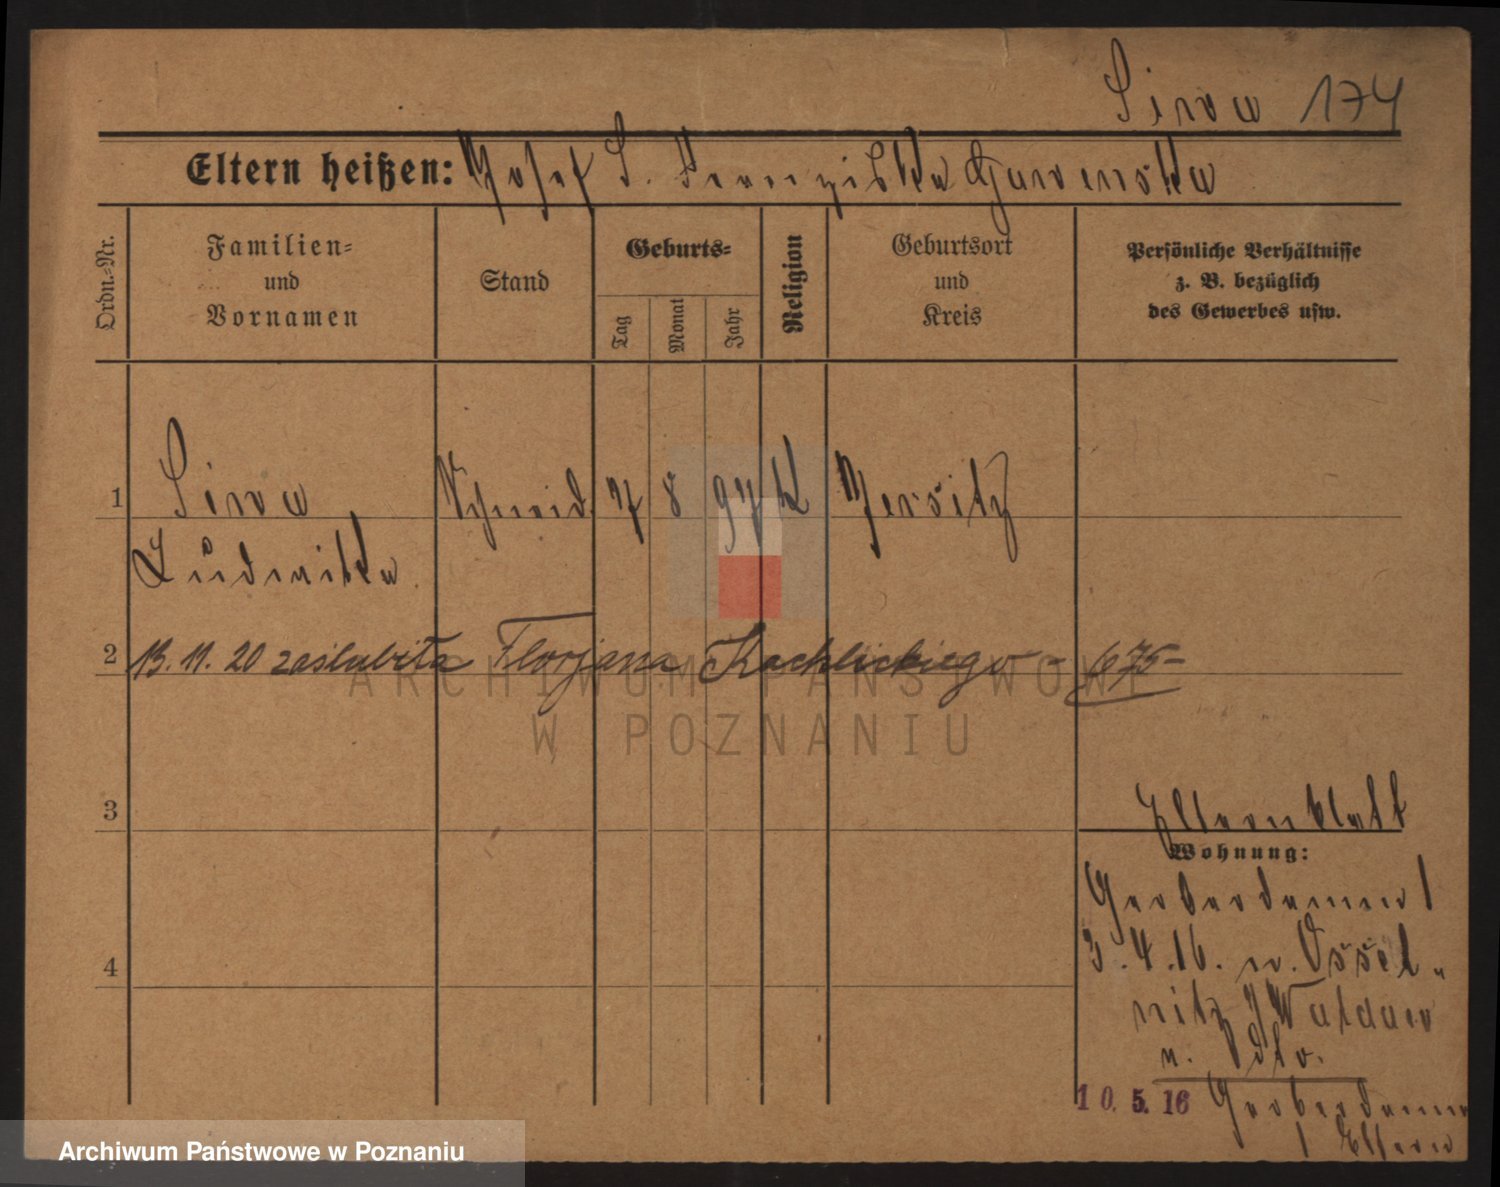 Sirva 174
Eltern heißen: Josef S. Franziska
Ordn.-Nr.
Familien-
und
Vornamen
Stand
Geburts-
Tag
Monat
Jahr
Religion
Geburtsort
und
Kreis
Persönliche Verhältnisse
z. B. bezüglich
des Gewerbes usw.
1 Sirva Schneid. 7 8 97 k Jersitz
Ludwika
2 13. 11. 20 zaślubiła Florjana Kachlickiego - 675-
3
Elternblatt
Wohnung:
Gerberdamm 1
3.4.16. n. Ossel-
nitz Waldau
n.
4
10. 5. 16 Gerberdamm
1 Eltern
ARCHIWUM PAŃSTWOWE
W POZNANIU
Archiwum Państwowe w Poznaniu